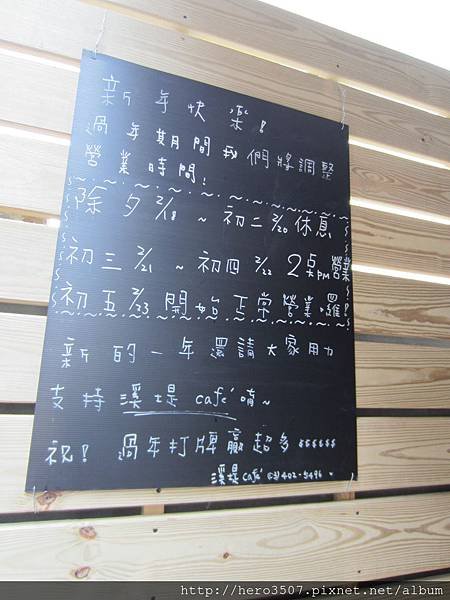 新年快樂!
過年期間我們將調整
營業時間!
除夕2/18 ~ 初二2/20休息
初三2/21 ~ 初四2/22 2点pm營業
初五2/23 開始正常營業囉!
新的一年還請大家用力
支持溪堤café唷~
祝! 過年打牌贏超多$$$$$$
溪堤café (03)402-5496
http://hero3507.pixnet.net/album